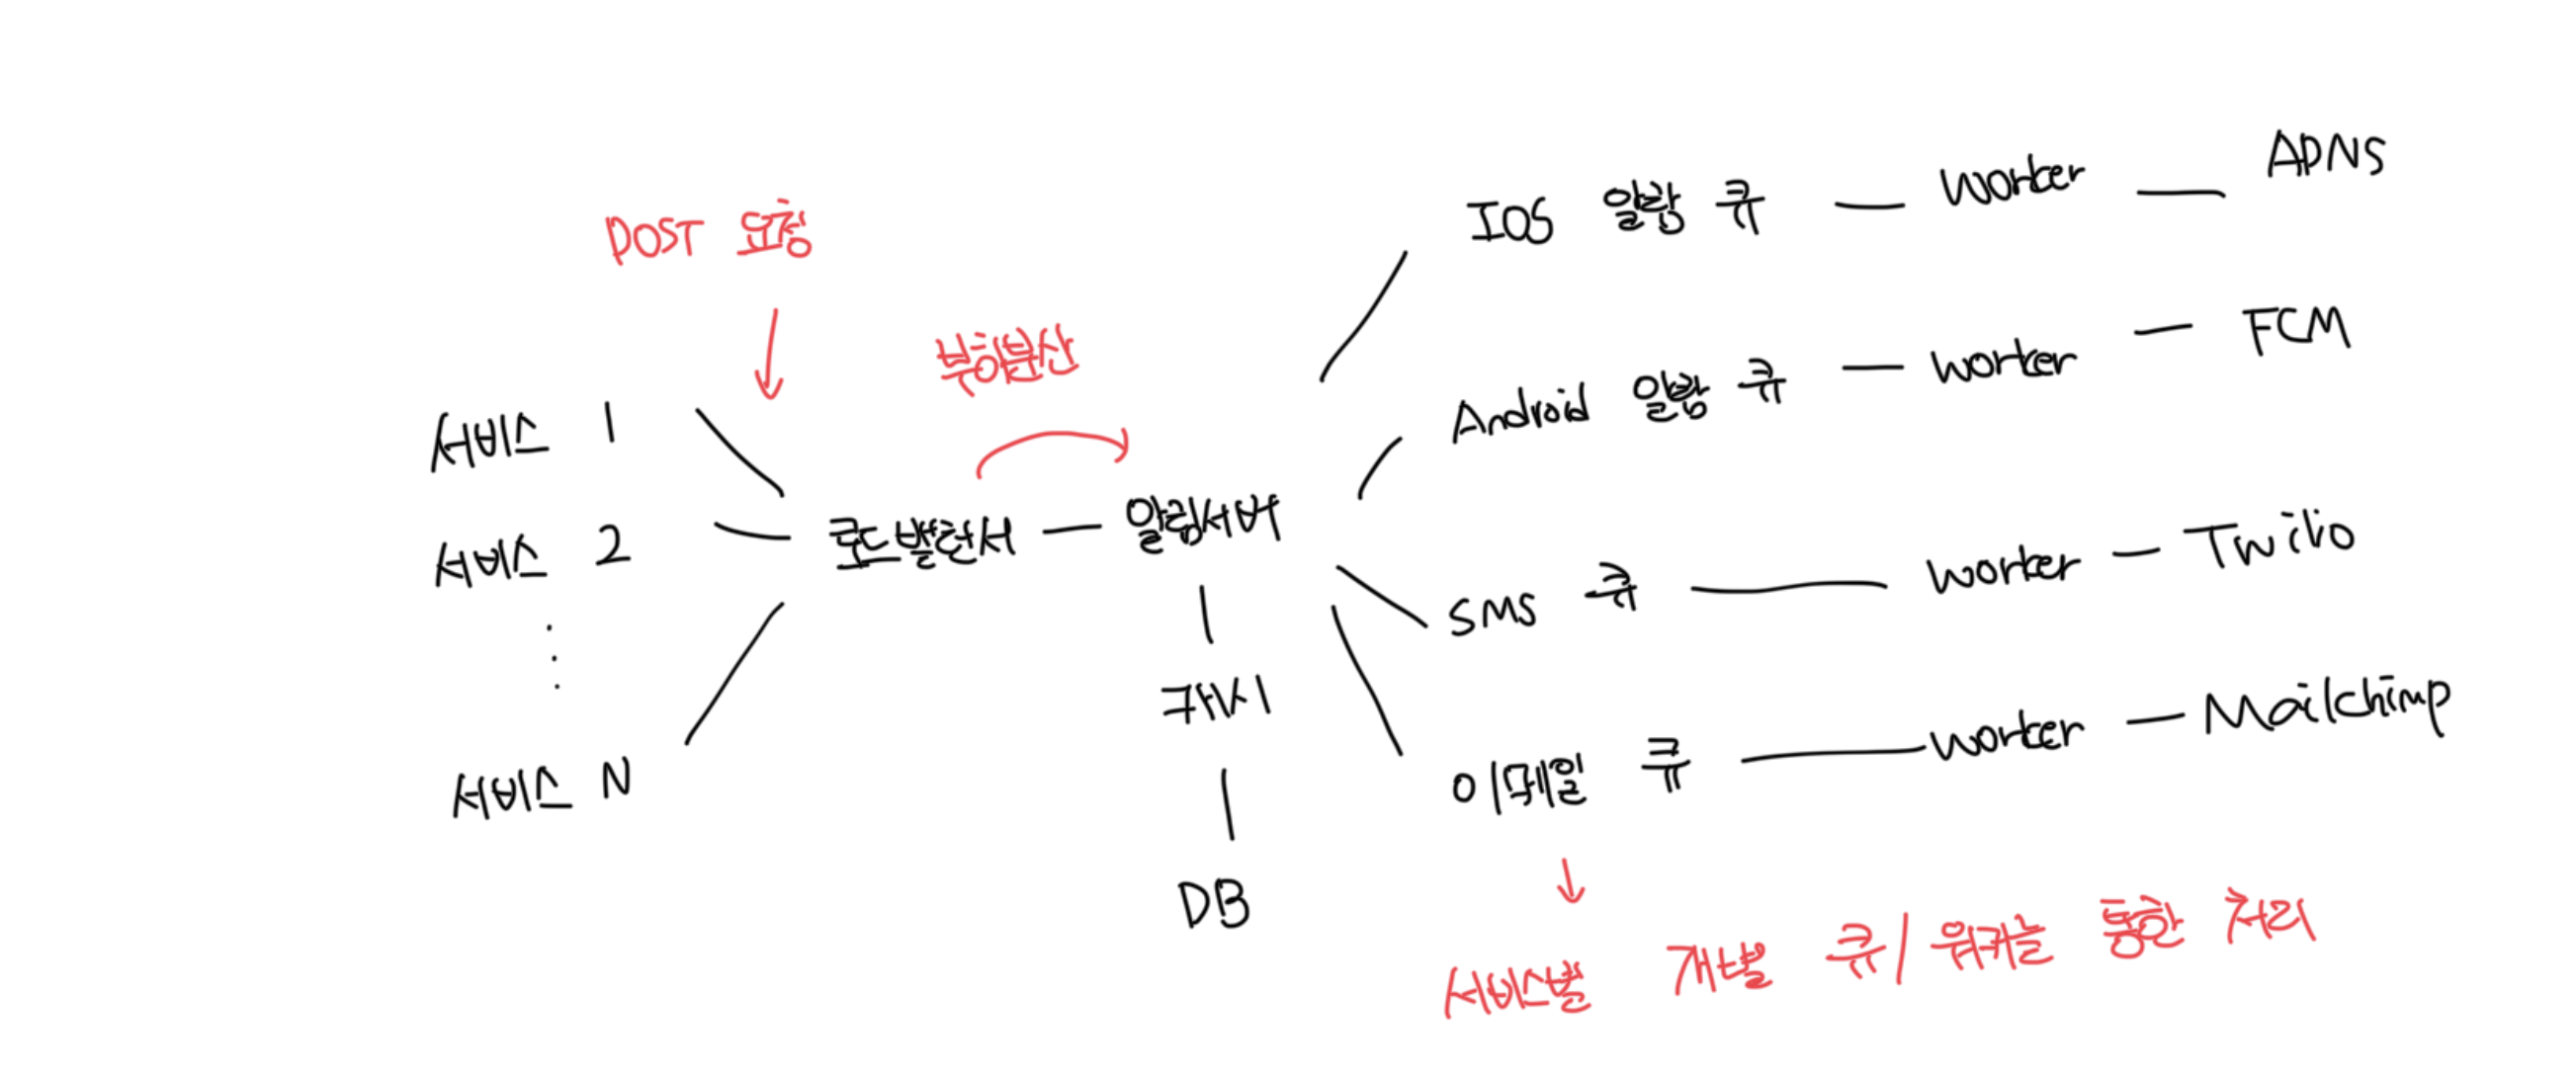 POST 요청
부하분산
서비스 1
서비스 2
서비스 N
로드밸런서
알림서버
캐시
DB
IOS 알람 큐
worker
APNS
Android 알람 큐
worker
FCM
SMS 큐
worker
Twilio
이메일 큐
worker
Mailchimp
서비스별 개별 큐/워커를 통한 처리